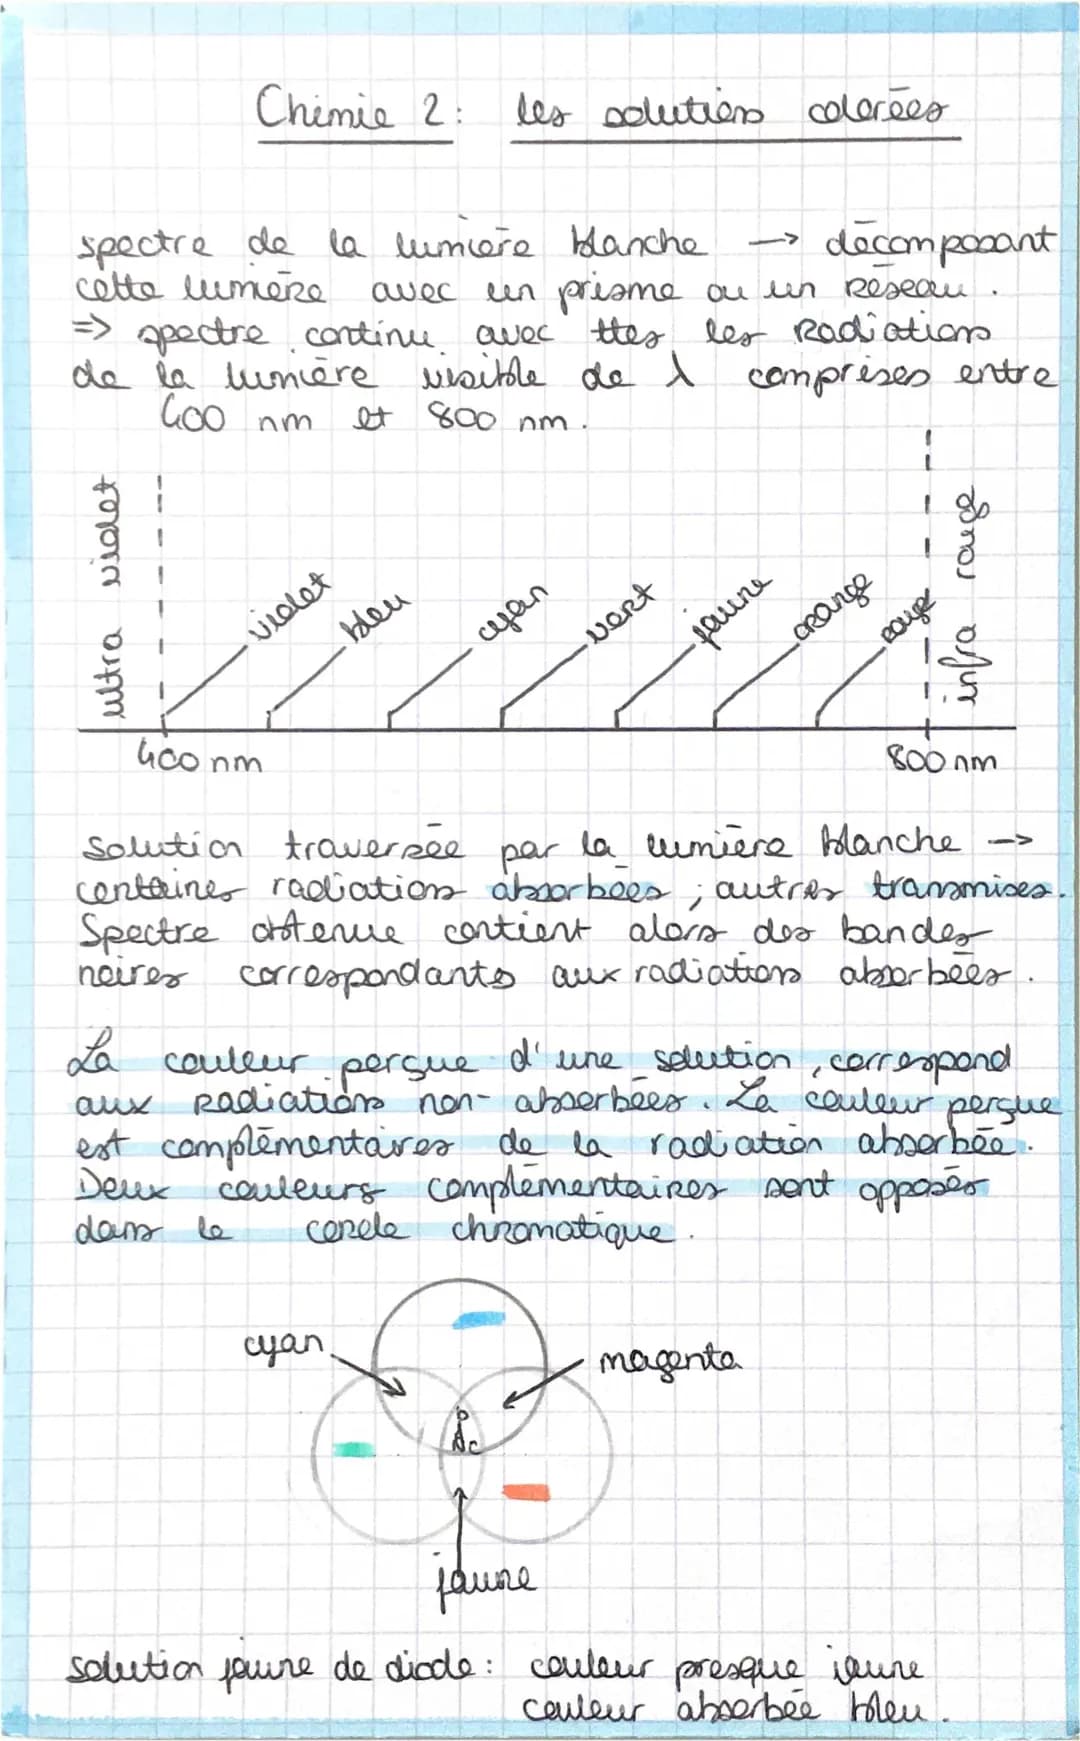 Chimie 2 : les solutions colorées
spectre de la lumière blanche → décomposant
cette lumière avec un prisme ou un réseau .
=> spectre continu avec ttes les Radiations
de la lumière visible de λ comprises entre
400 nm et 800 nm .
ultra violet
violet
bleu
cyan
vert
jaune
orange
rouge
infra rouge
400 nm
800 nm
Solution traversée par la lumière blanche →
containes radiations absorbées ; autres transmises .
Spectre obtenue contient alors des bandes
noires correspondants aux radiations absorbées .
La couleur perçue d'une solution , correspond
aux Radiations non- absorbées . La couleur perçue
est complémentaires de la radiation absorbée .
Deux couleurs complémentaires sont opposés
dans le cercle chromatique .
cyan
magenta
jaune
solution jaune de diode : couleur presque jaune
couleur absorbée bleu .